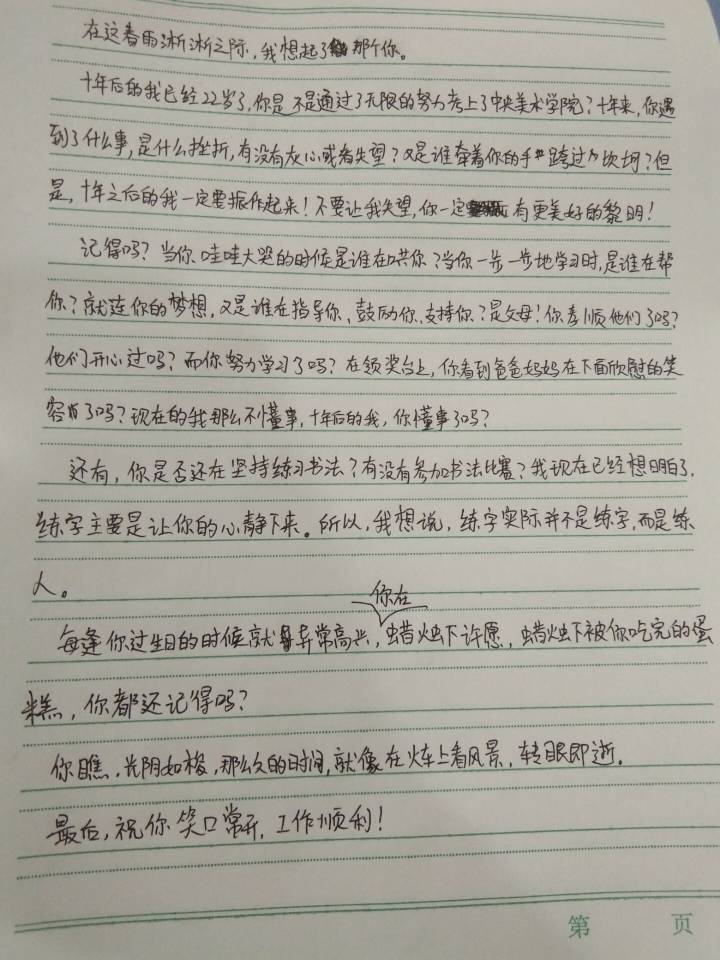 在这春雨淅淅之际，我想起了那个你。
十年后的我已经22岁了，你是不是通过了无限的努力考上了中央美术学院？十年来，你遇
到了什么事，是什么挫折，有没有灰心或者失望？又是谁牵着你的手跨过坎坷？但
是，十年之后的我一定要振作起来！不要让我失望，你一定有更美好的黎明！
记得吗？当你哇哇大哭的时候是谁在哄你？当你一步一步地学习时，是谁在帮
你？就连你的梦想，又是谁在指导你、鼓励你、支持你？是父母！你孝顺他们了吗？
他们开心过吗？而你努力学习了吗？在领奖台上，你看到爸爸妈妈在下面欣慰的笑
容了吗？现在的我那么不懂事，十年后的我，你懂事了吗？
还有，你是否还在坚持练习书法？有没有参加书法比赛？我现在已经想明白了，
练字主要是让你的心静下来。所以，我想说，练字实际并不是练字，而是练
人。
每逢你过生日的时候就异常高兴，你在蜡烛下许愿，蜡烛下被你吃完的蛋
糕，你都还记得吗？
你瞧，光阴如梭，那么久的时间，就像在火车上看风景，转眼即逝。
最后，祝你笑口常开，工作顺利！
第 页